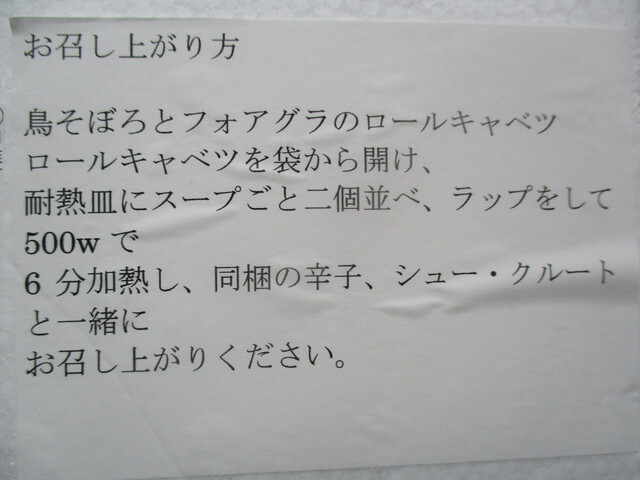 お召し上がり方
鳥そぼろとフォアグラのロールキャベツ
ロールキャベツを袋から開け、
耐熱皿にスープごと二個並べ、ラップをして
500w で
6 分加熱し、同梱の辛子、シュー・クルート
と一緒に
お召し上がりください。